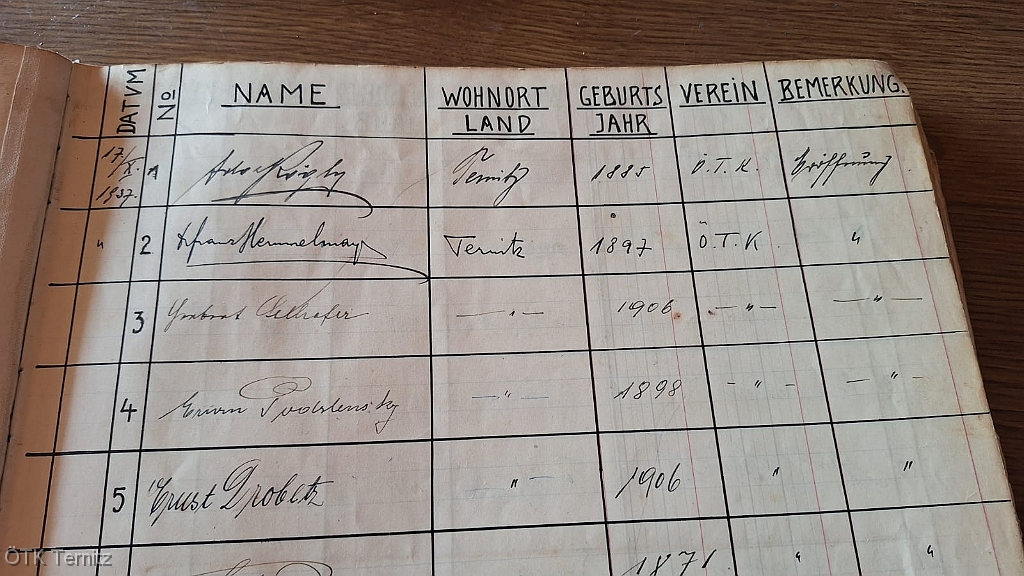 DATVM No NAME WOHNORT LAND GEBURTS JAHR VEREIN BEMERKUNG.
17/X. 1937. 1 Ternitz 1885 Ö.T.K. Eröffnung.
" 2 Ternitz 1897 Ö.T.K "
3 —"— 1906 —"— —"—
4 —"— 1898 —"— —"—
5 Ernst Drobetz —"— 1906 " "
1871. " "
ÖTK Ternitz